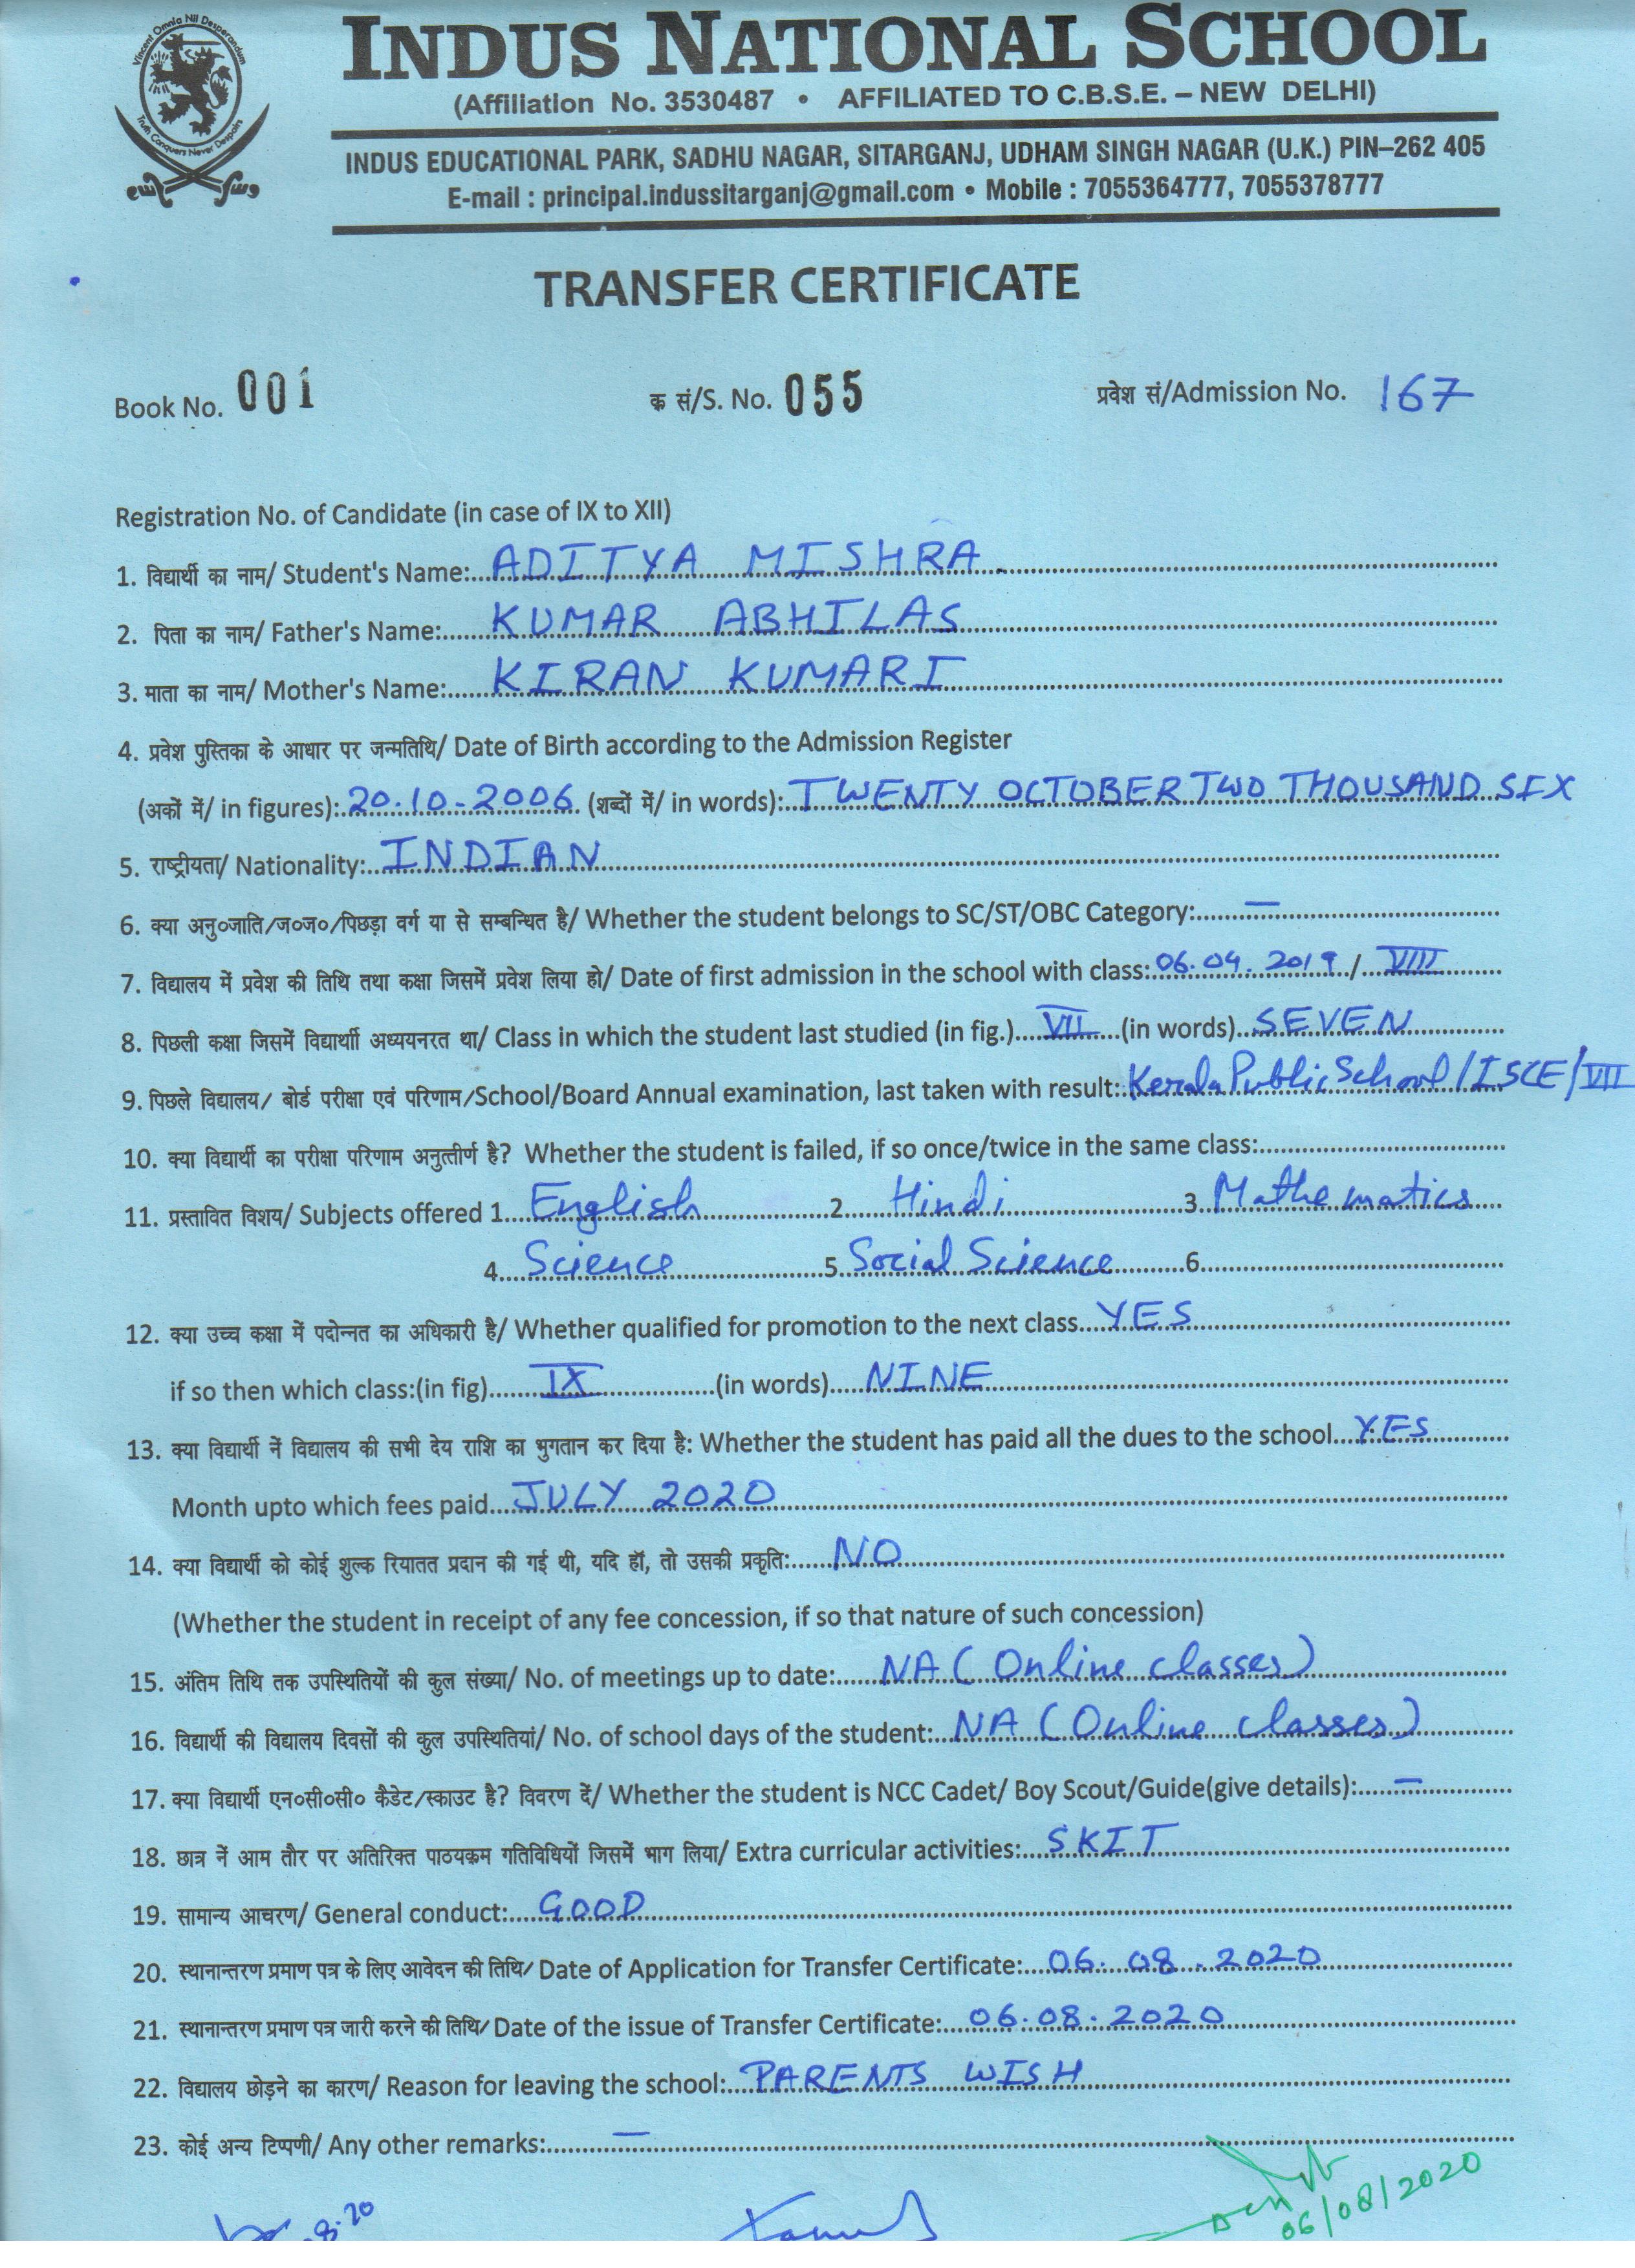 Vincent Omnia Nil Desperandum
Truth Conquers Never Despairs
INDUS NATIONAL SCHOOL
(Affiliation No. 3530487 • AFFILIATED TO C.B.S.E. – NEW DELHI)
INDUS EDUCATIONAL PARK, SADHU NAGAR, SITARGANJ, UDHAM SINGH NAGAR (U.K.) PIN–262 405
E-mail : principal.indussitarganj@gmail.com • Mobile : 7055364777, 7055378777
TRANSFER CERTIFICATE
Book No. 001 क सं/S. No. 055 प्रवेश सं/Admission No. 167
Registration No. of Candidate (in case of IX to XII)
1. विद्यार्थी का नाम/ Student's Name: ADITYA MISHRA
2. पिता का नाम/ Father's Name: KUMAR ABHILAS
3. माता का नाम/ Mother's Name: KIRAN KUMARI
4. प्रवेश पुस्तिका के आधार पर जन्मतिथि/ Date of Birth according to the Admission Register
(अकों में/ in figures): 20.10-2006 (शब्दों में/ in words): TWENTY OCTOBER TWO THOUSAND SIX
5. राष्ट्रीयता/ Nationality: INDIAN
6. क्या अनु०जाति/ज०ज०/पिछड़ा वर्ग या से सम्बन्धित है/ Whether the student belongs to SC/ST/OBC Category: —
7. विद्यालय में प्रवेश की तिथि तथा कक्षा जिसमें प्रवेश लिया हो/ Date of first admission in the school with class: 06.04.2019 / VIII
8. पिछली कक्षा जिसमें विद्यार्थी अध्ययनरत था/ Class in which the student last studied (in fig.) VII (in words) SEVEN
9. पिछले विद्यालय/ बोर्ड परीक्षा एवं परिणाम/School/Board Annual examination, last taken with result: Kerala Public School/ISCE/VII
10. क्या विद्यार्थी का परीक्षा परिणाम अनुत्तीर्ण है? Whether the student is failed, if so once/twice in the same class:
11. प्रस्तावित विशय/ Subjects offered 1 English 2 Hindi 3 Mathematics
4 Science 5 Social Science 6
12. क्या उच्च कक्षा में पदोन्नत का अधिकारी है/ Whether qualified for promotion to the next class YES
if so then which class:(in fig) IX (in words) NINE
13. क्या विद्यार्थी नें विद्यालय की सभी देय राशि का भुगतान कर दिया है: Whether the student has paid all the dues to the school YES
Month upto which fees paid JULY 2020
14. क्या विद्यार्थी को कोई शुल्क रियातत प्रदान की गई थी, यदि हॉ, तो उसकी प्रकृति: NO
(Whether the student in receipt of any fee concession, if so that nature of such concession)
15. अंतिम तिथि तक उपस्थितियों की कुल संख्या/ No. of meetings up to date: NA (Online classes)
16. विद्यार्थी की विद्यालय दिवसों की कुल उपस्थितियां/ No. of school days of the student: NA (Online classes)
17. क्या विद्यार्थी एन०सी०सी० कैडेट/स्काउट है? विवरण दें/ Whether the student is NCC Cadet/ Boy Scout/Guide(give details): —
18. छात्र नें आम तौर पर अतिरिक्त पाठयक्रम गतिविधियों जिसमें भाग लिया/ Extra curricular activities: SKIT
19. सामान्य आचरण/ General conduct: GOOD
20. स्थानान्तरण प्रमाण पत्र के लिए आवेदन की तिथि/ Date of Application for Transfer Certificate: 06.08.2020
21. स्थानान्तरण प्रमाण पत्र जारी करने की तिथि/ Date of the issue of Transfer Certificate: 06.08.2020
22. विद्यालय छोड़ने का कारण/ Reason for leaving the school: PARENTS WISH
23. कोई अन्य टिप्पणी/ Any other remarks: —
8.20 06/08/2020